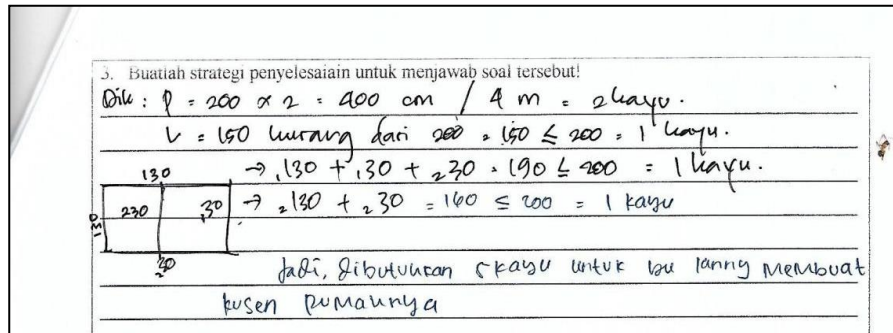 3. Buatlah strategi penyelesaiain untuk menjawab soal tersebut!
Dik : P = 200 x 2 = 400 cm / 4 m = 2 kayu.
L = 150 kurang dari 200 = 150 ≤ 200 = 1 kayu.
130 → ₁130 + ₁30 + ₂30 = 190 ≤ 200 = 1 kayu.
130 230 ₁30 → ₂130 + ₂30 = 160 ≤ 200 = 1 kayu
₂30
Jadi, dibutuhkan 5 kayu untuk bu lanny membuat
kusen rumahnya